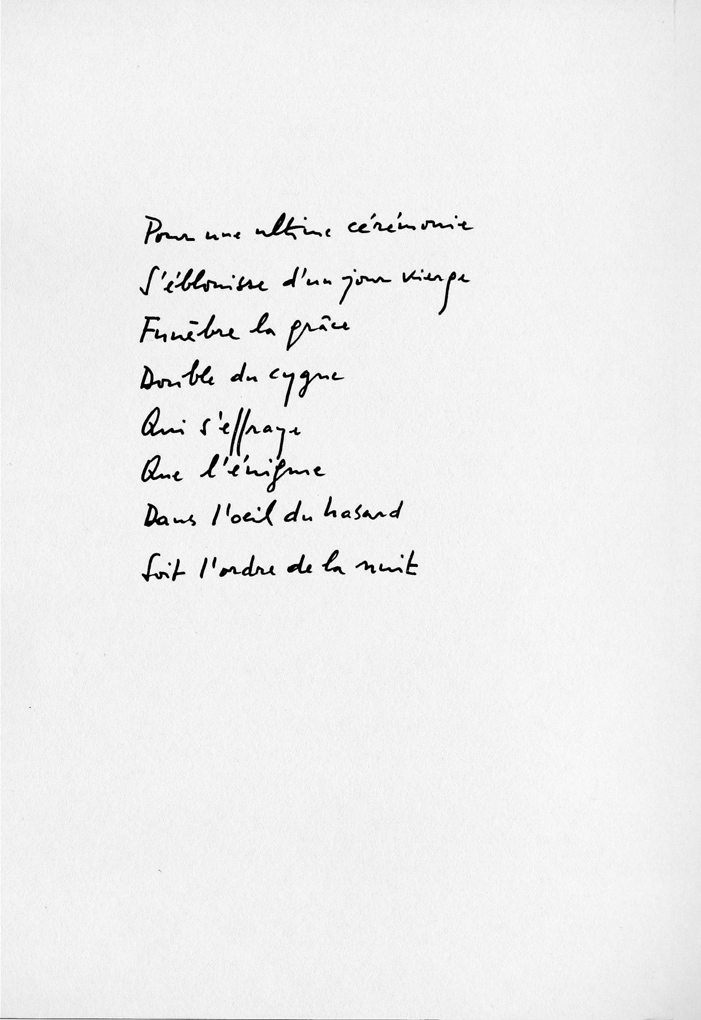 Pour une ultime cérémonie
S'éblouisse d'un jour vierge
Funèbre la grâce
Double du cygne
Qui s'effraye
Que l'énigme
Dans l'oeil du hasard
Soit l'ordre de la nuit